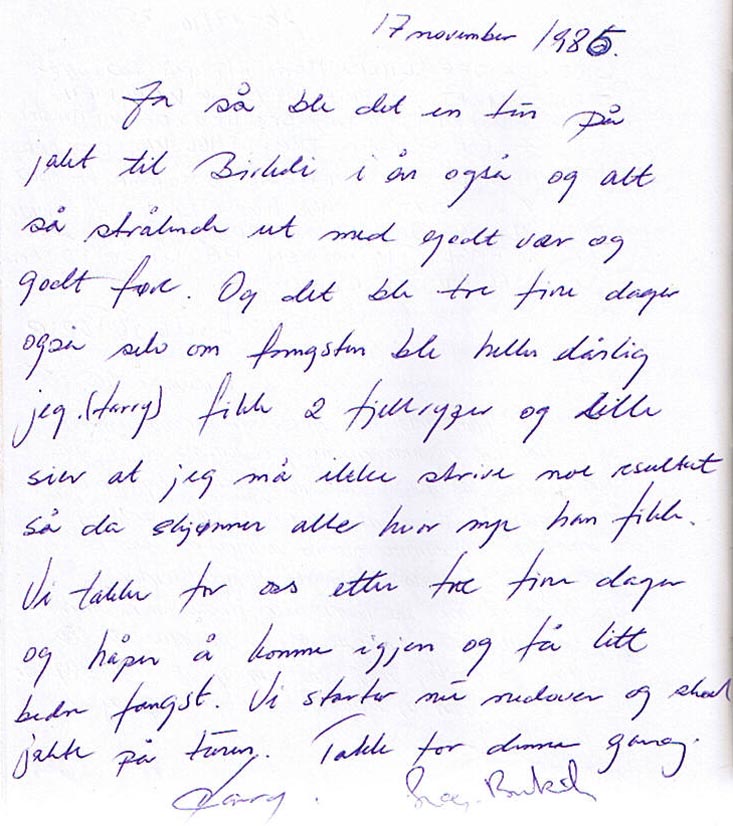 17 november 1985.
Ja så ble det en tur på
jakt til Birkeli i år også og alt
så strålende ut med godt vær og
godt føre. Og det ble tre fine dager
også selv om fangsten ble heller dårlig
jeg (Harry) fikk 2 fjellryper og Lille
sier at jeg må ikke skrive noe resultat
så da skjønner alle hvor mye han fikk.
Vi takker for oss etter tre fine dager
og håper å komme igjen og få litt
bedre fangst. Vi starter nu nedover og skal
jakte på turen. Takk for denne gang.
Harry.